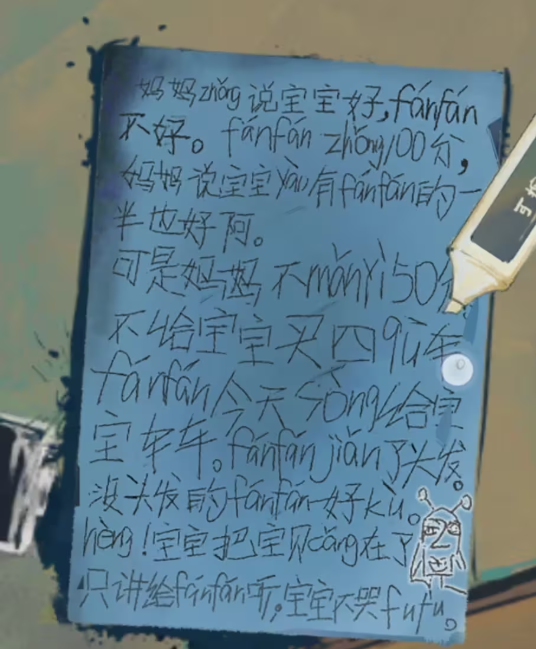 妈妈zhǒng说宝宝好,fánfán
不好。fánfán zhǒng100分,
妈妈说宝宝yào有fánfán的一
半也好阿。
可是妈妈不mǎnyì50分
不给宝宝买四qū车
fánfán今天sòng给宝
宝车车。fánfán jiǎn了头发。
没头发的fánfán好kù。
hèng!宝宝把宝贝cáng在了
只讲给fánfán听,宝宝不哭fufu。